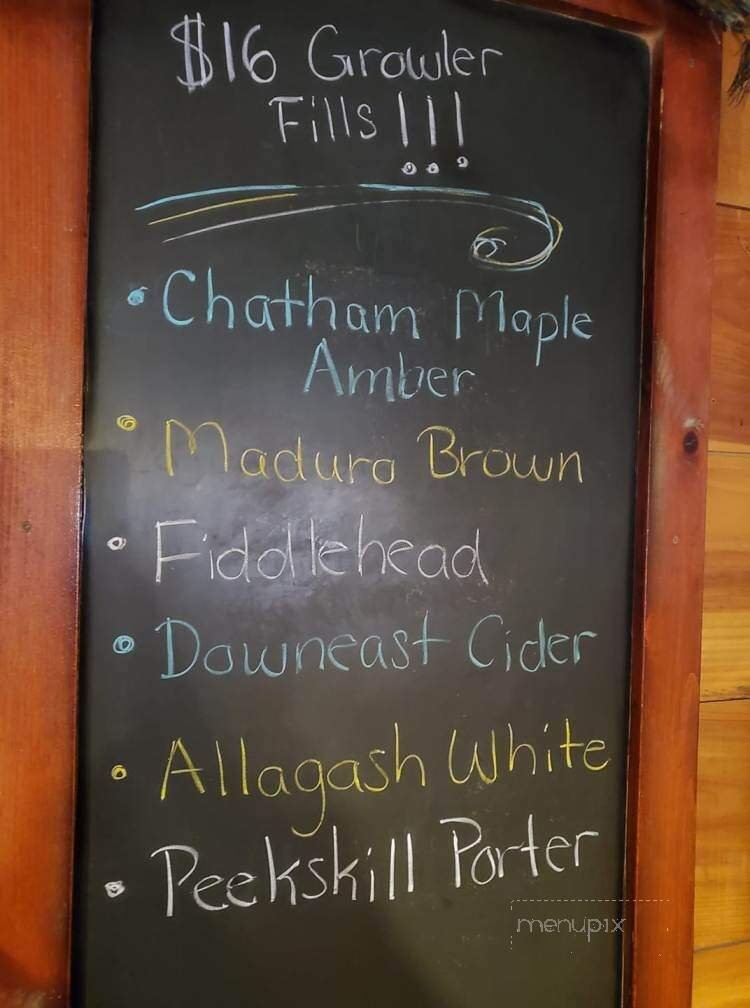 $16 Growler
Fills!!!
• Chatham Maple
Amber
• Maduro Brown
• Fiddlehead
• Downeast Cider
• Allagash White
• Peekskill Porter
menupix